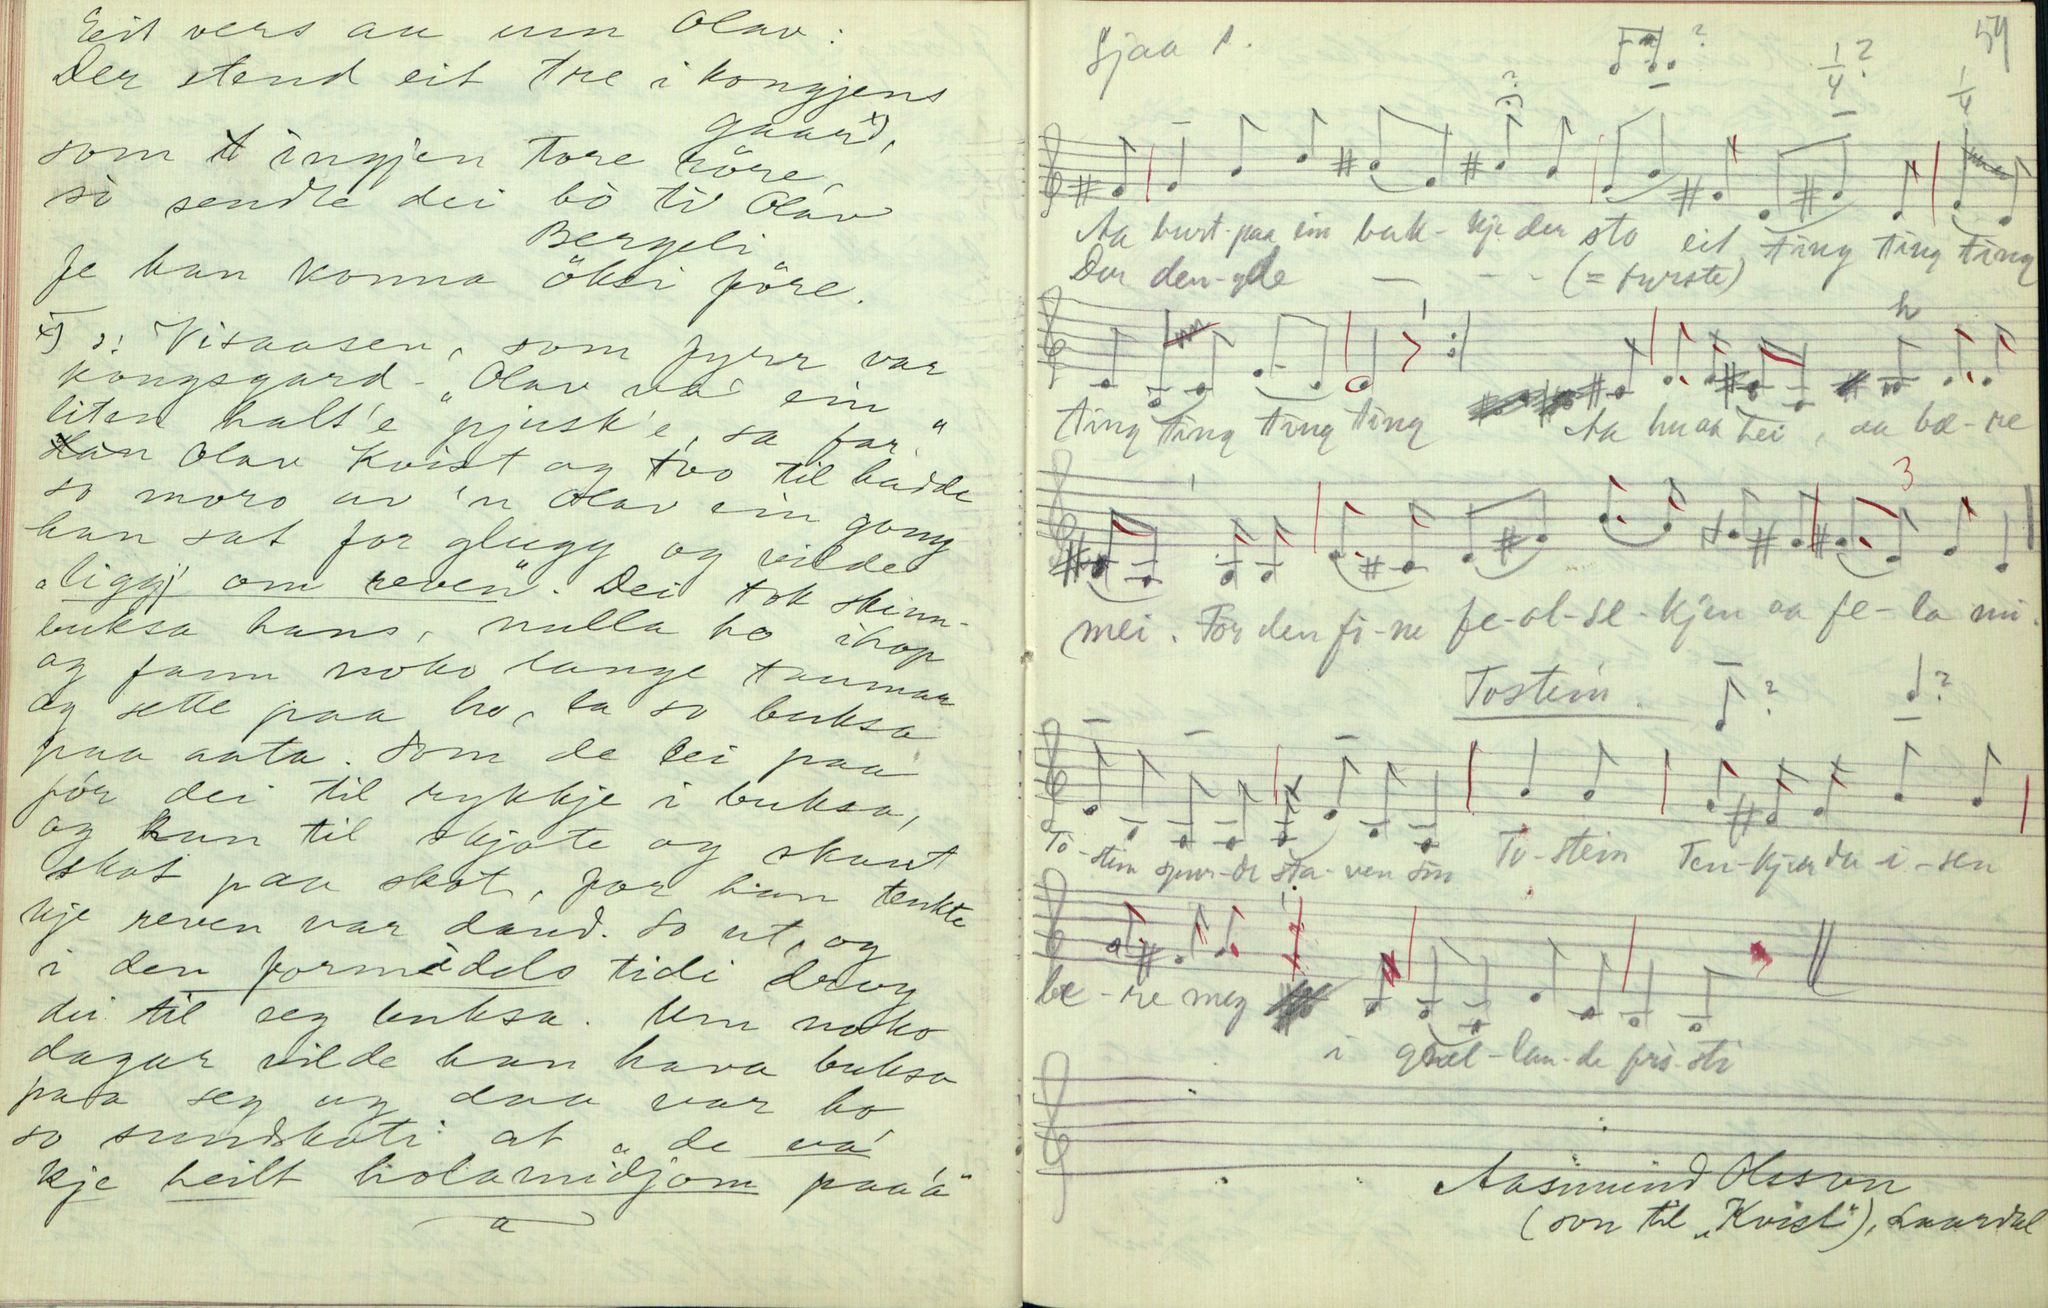 Eit vers au um Olav:
Der stend eit tre i kongjens
gaard x),
som ingjen tore röre,
so sendte dei bò til Olav
Bergeli
fe han konna öksi före.
x) ɔ: Visaasen, som fyrr var
kongsgard - "Olav va' ein
liten halt'e pjusk'e, sa far."
Olav Kvist og tvo til hadde
so moro av 'n Olav ein gong
han sat for glugg og vilde
"liggj' om reven". Dei tok skinn-
buksa hans, rulla ho ihop
og fann noko lange taumar
og sette paa ho, la so buksa
paa aata. Som de lei paa
fór dei til rykkje i buksa,
og han til skjote og skaut
skot paa skot, for han tenkte
kje reven var daud. So ut, og
i den formiddels tidi drog
dei til seg buksa. Um noko
dagar vilde han hava buksa
paa seg og daa var ho
so sundskoti at "de va'
kje heilt holamidjom paa'a"
Sjaa 1.
54
? 1/4 ? 1/4
Aa burt-paa ein bak-kje der sto eit ting ting ting
Der den-gle — - - (= fyrste)
ting ting ting ting Aa huaa hei, aa bæ-re
3
mei. For den fi-ne fe-ol-se-kjen aa fe-la mi.
Tostein.
? ?
To-stein spur-de sta-ven sin To-stein Ten-kjer du i-sen
be-re meg
i qvæl-lan-de fris-ti
Aasmund Olsson
(son til "Kvist"), Laardal